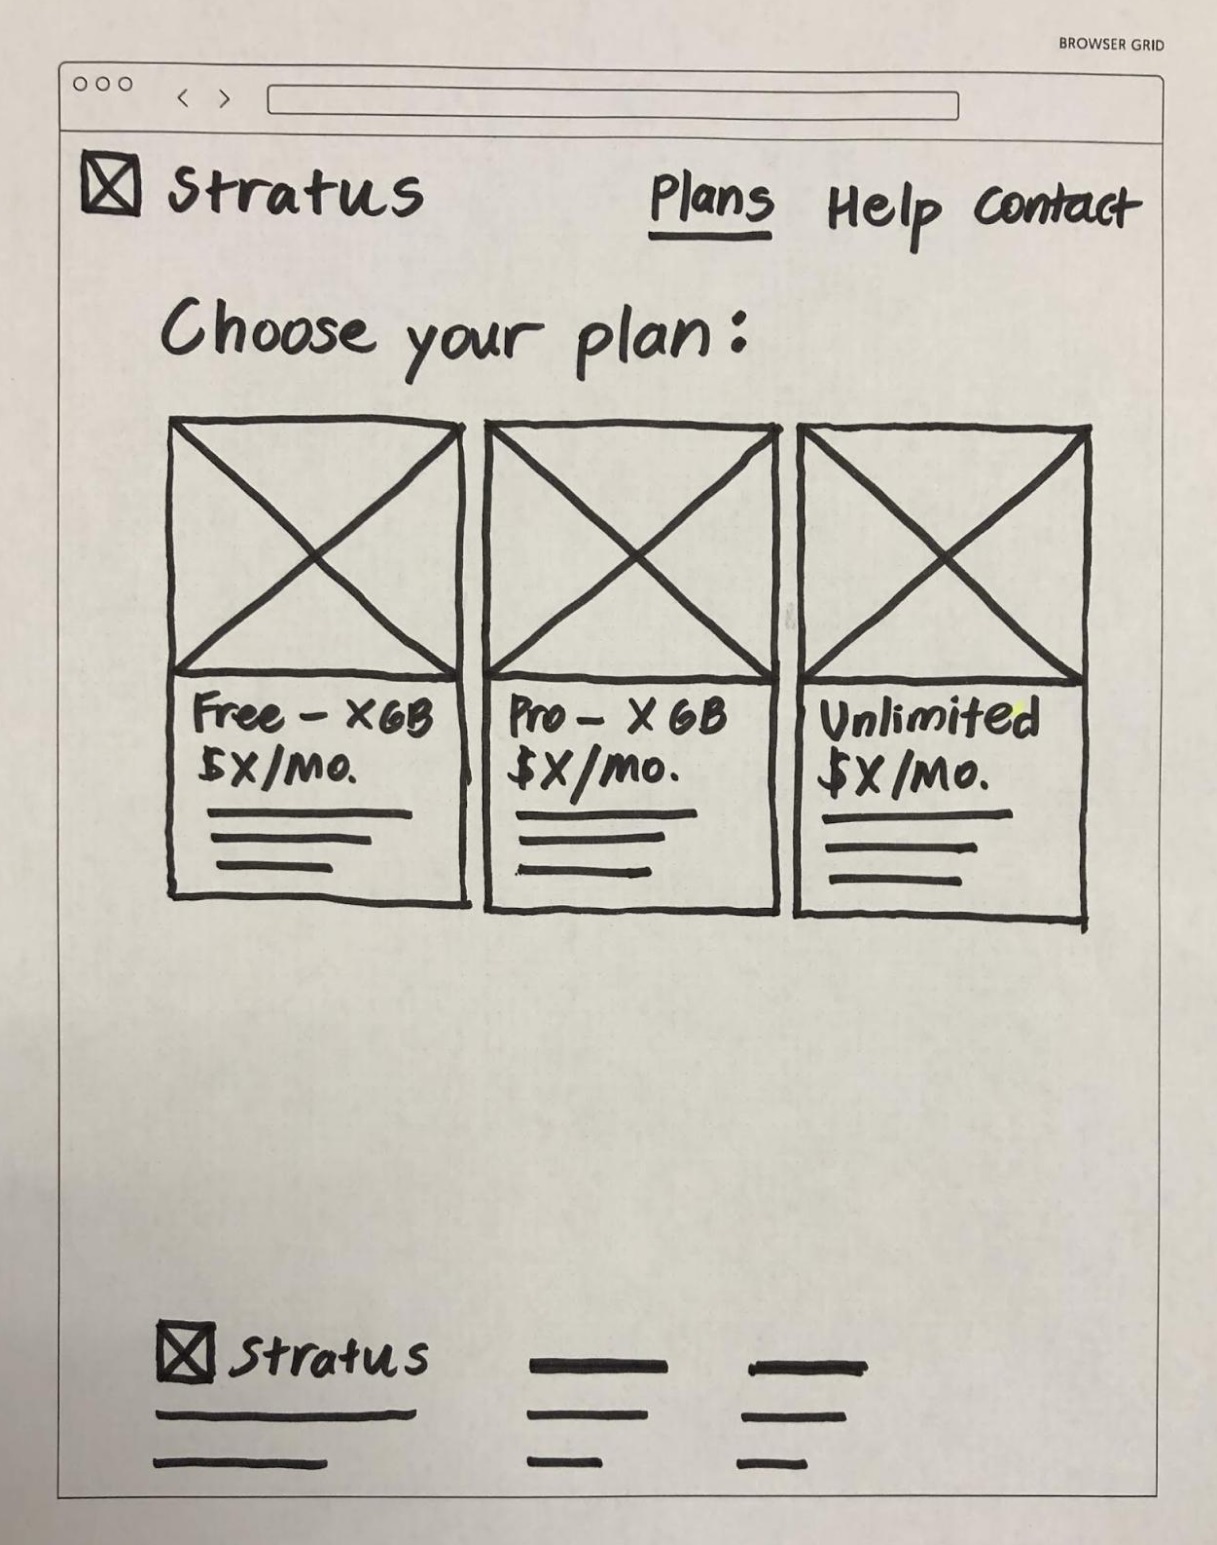 BROWSER GRID
Stratus Plans Help Contact
Choose your plan:
Free - XGB
$X/mo.
Pro - X GB
$X/mo.
Unlimited
$X/mo.
Stratus